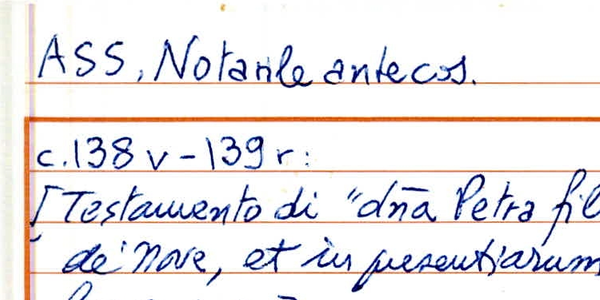 ASS, Notarile antecos.
c. 138 v - 139 r:
[Testamento di "dnā Petra fil
de' Nove, et in presentiarum